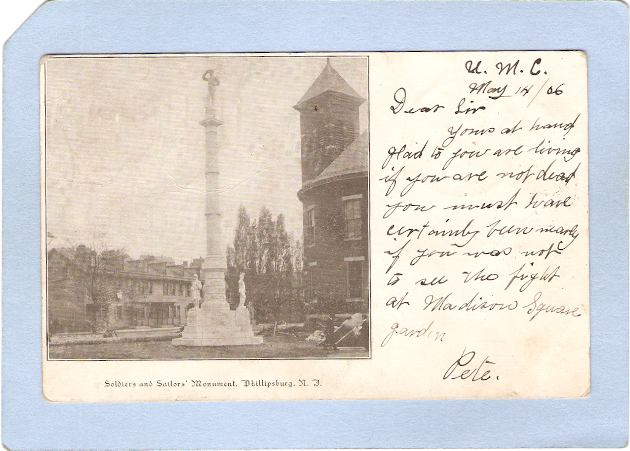 U. M. C.
May 14/06
Dear Sir
Yours at hand
glad to you are living
if you are not dead
you must have
certainly been nearly
if you was not
to see the fight
at Madison Square
garden
Pete.
Soldiers and Sailors' Monument, Phillipsburg, N. J.